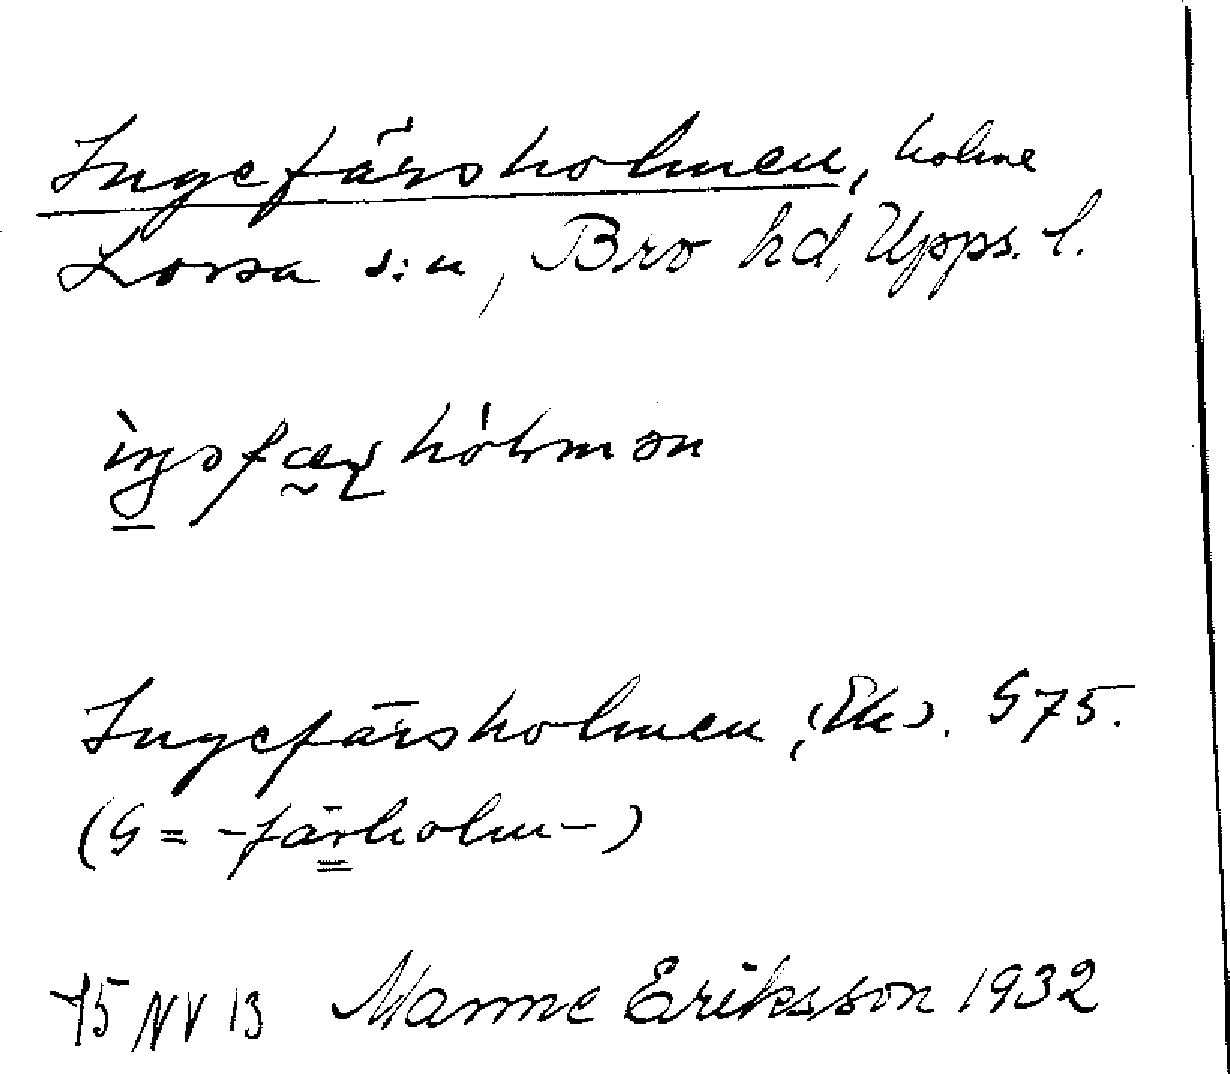 Ingefärsholmen, holme
Lossa s:n, Bro hd, Upps. l.
Ingefärsholmen, (Ek). G75.
(G = -färholm-)
75 NV 13 Manne Eriksson 1932